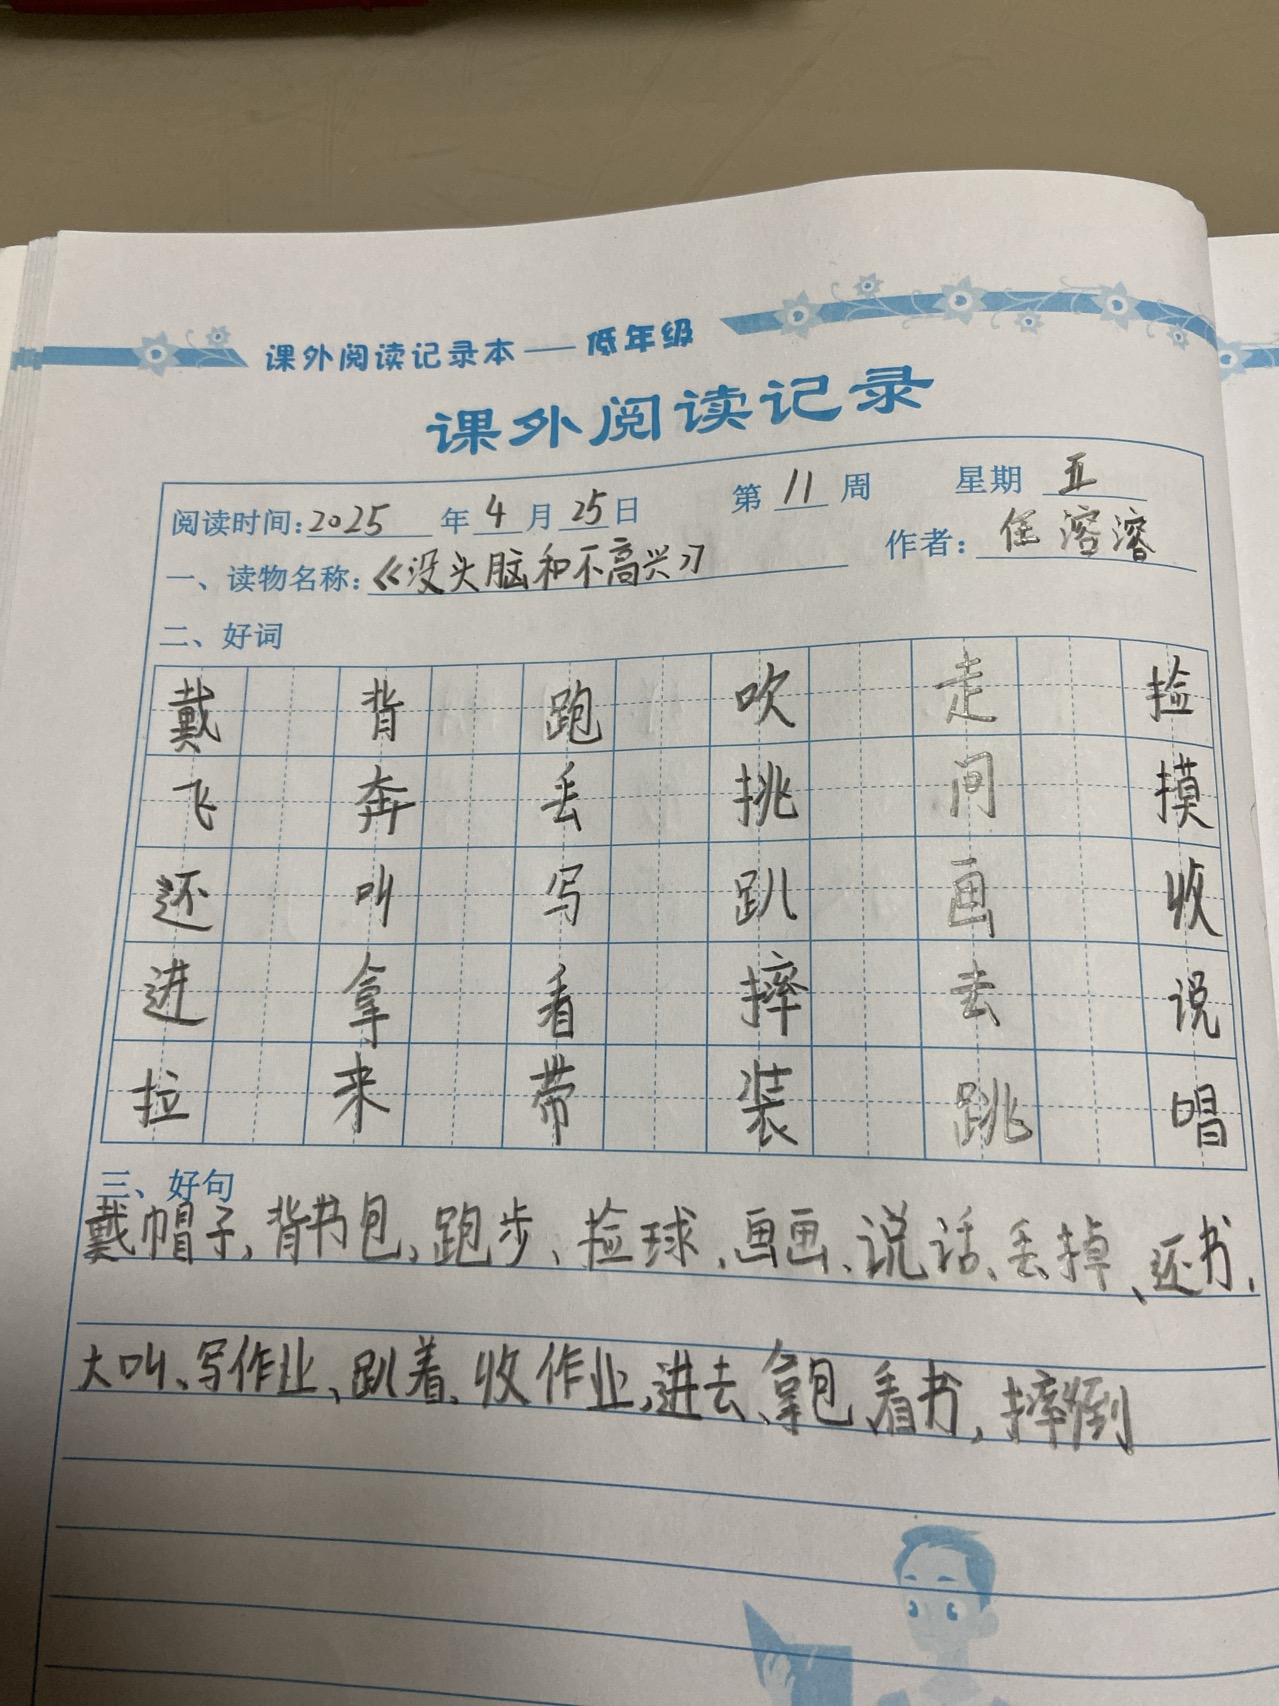 课外阅读记录本——低年级
课外阅读记录
阅读时间：2025年4月25日 第11周 星期五
一、读物名称：《没头脑和不高兴》 作者：任溶溶
二、好词
戴 背 跑 吹 走 捡
飞 奔 丢 挑 问 摸
还 叫 写 趴 画 收
进 拿 看 摔 去 说
拉 来 带 装 跳 唱
三、好句
戴帽子、背书包、跑步、捡球、画画、说话、丢掉、还书、
大叫、写作业、趴着、收作业、进去、拿包、看书、摔倒